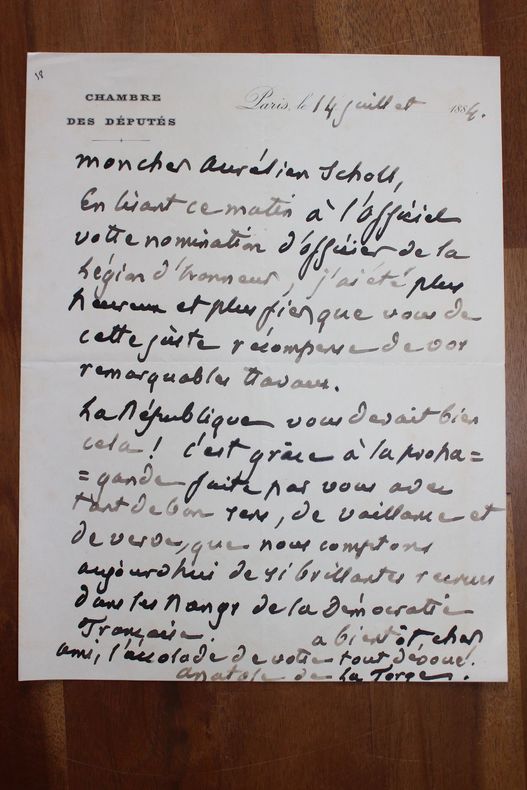 CHAMBRE
DES DÉPUTÉS
Paris, le 14 juillet 1884.
mon cher Aurélien Scholl,
En lisant ce matin à l'officiel
votre nomination d'officier de la
Légion d'honneur, j'ai été plus
heureux et plus fier que vous de
cette juste récompense de vos
remarquables travaux.
La République vous devait bien
cela ! c'est grâce à la propa=
=gande faite par vous avec
tant de bon sens, de vaillance et
de verve, que nous comptons
aujourdhui de si brillantes recrues
dans les rangs de la Démocratie
Française. a bientôt cher
ami, l'accolade de votre tout dévoué.
Anatole de La Forge.